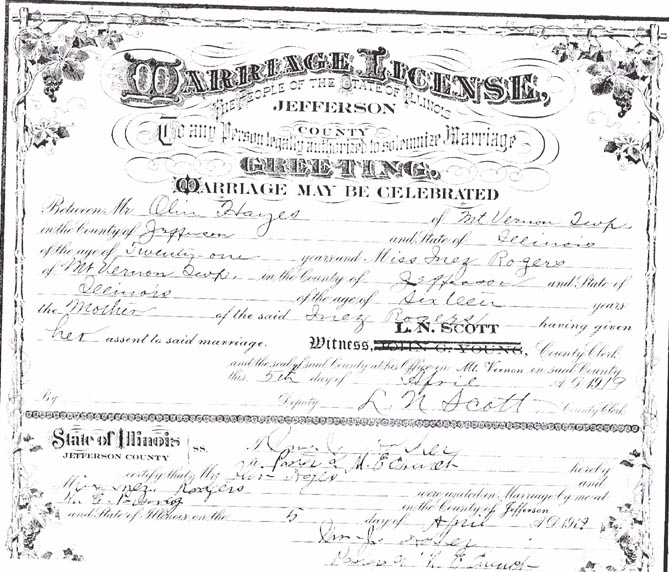 MARRIAGE LICENSE,
THE PEOPLE OF THE STATE OF ILLINOIS
JEFFERSON
COUNTY
To any Person legally authorized to solemnize Marriage
GREETING.
MARRIAGE MAY BE CELEBRATED
Between Mr. Olin Hayes of Mt Vernon Twp.
in the County of Jefferson and State of Illinois
of the age of Twenty one years and Miss Inez Rogers
of Mt Vernon Twp. in the County of Jefferson and State of
Illinois of the age of Sixteen years
the Mother of the said Inez Rogers having given
L. N. SCOTT
her assent to said marriage. Witness, JOHN G. YOUNG, County Clerk
and the seal of said County at his Office in Mt. Vernon in said County
this 5th day of April A D 1919
By Deputy L N Scott County Clerk
State of Illinois ss. I
JEFFERSON COUNTY Pastor of M. E. Church hereby
certify that Mr. and
Rodgers were united in Marriage by me at
in the County of Jefferson
and State of Illinois, on the 5 day of April A D 1919